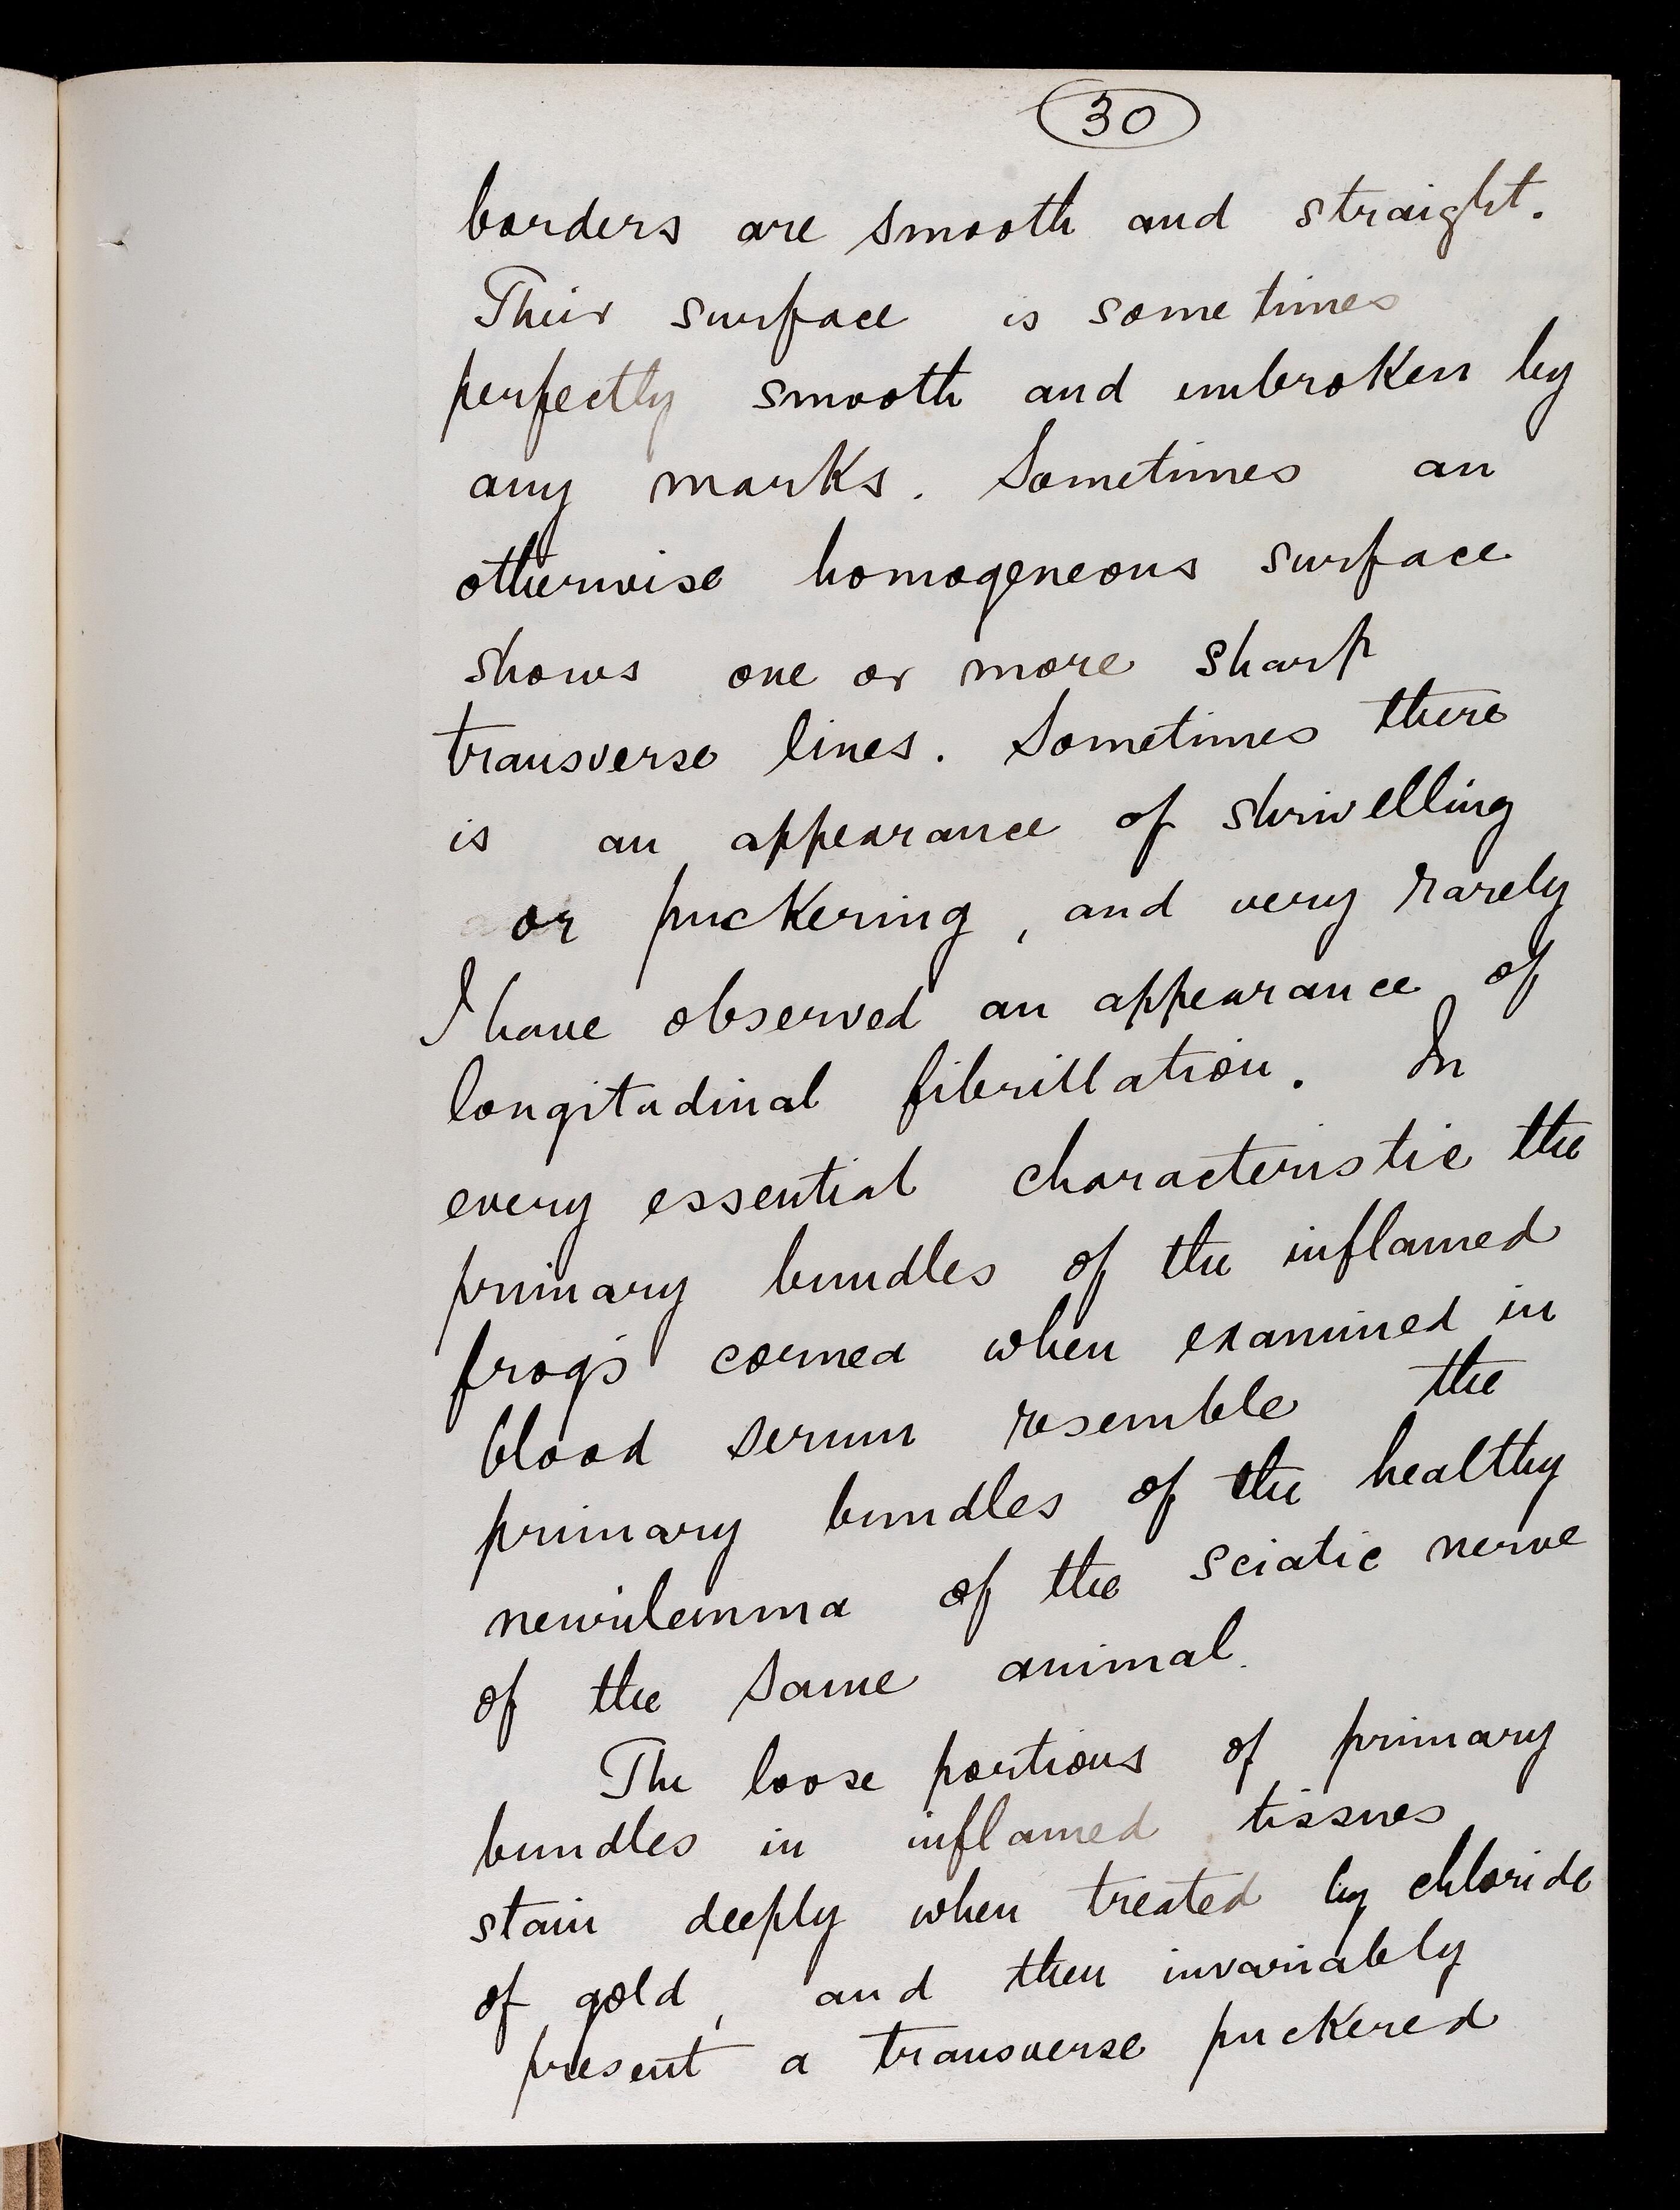 30
borders are smooth and straight.
Their surface is sometimes
perfectly smooth and unbroken by
any marks. Sometimes an
otherwise homogeneous surface
shows one or more sharp
transverse lines. Sometimes there
is an appearance of shrivelling
or puckering, and very rarely
I have observed an appearance of
longitudinal fibrillation. In
every essential characteristic the
primary bundles of the inflamed
frog's cornea when examined in
blood serum resemble the
primary bundles of the healthy
neurilemma of the sciatic nerve
of the same animal.
The loose portions of primary
bundles in inflamed tissues
stain deeply when treated by chloride
of gold, and then invariably
present a transverse puckered